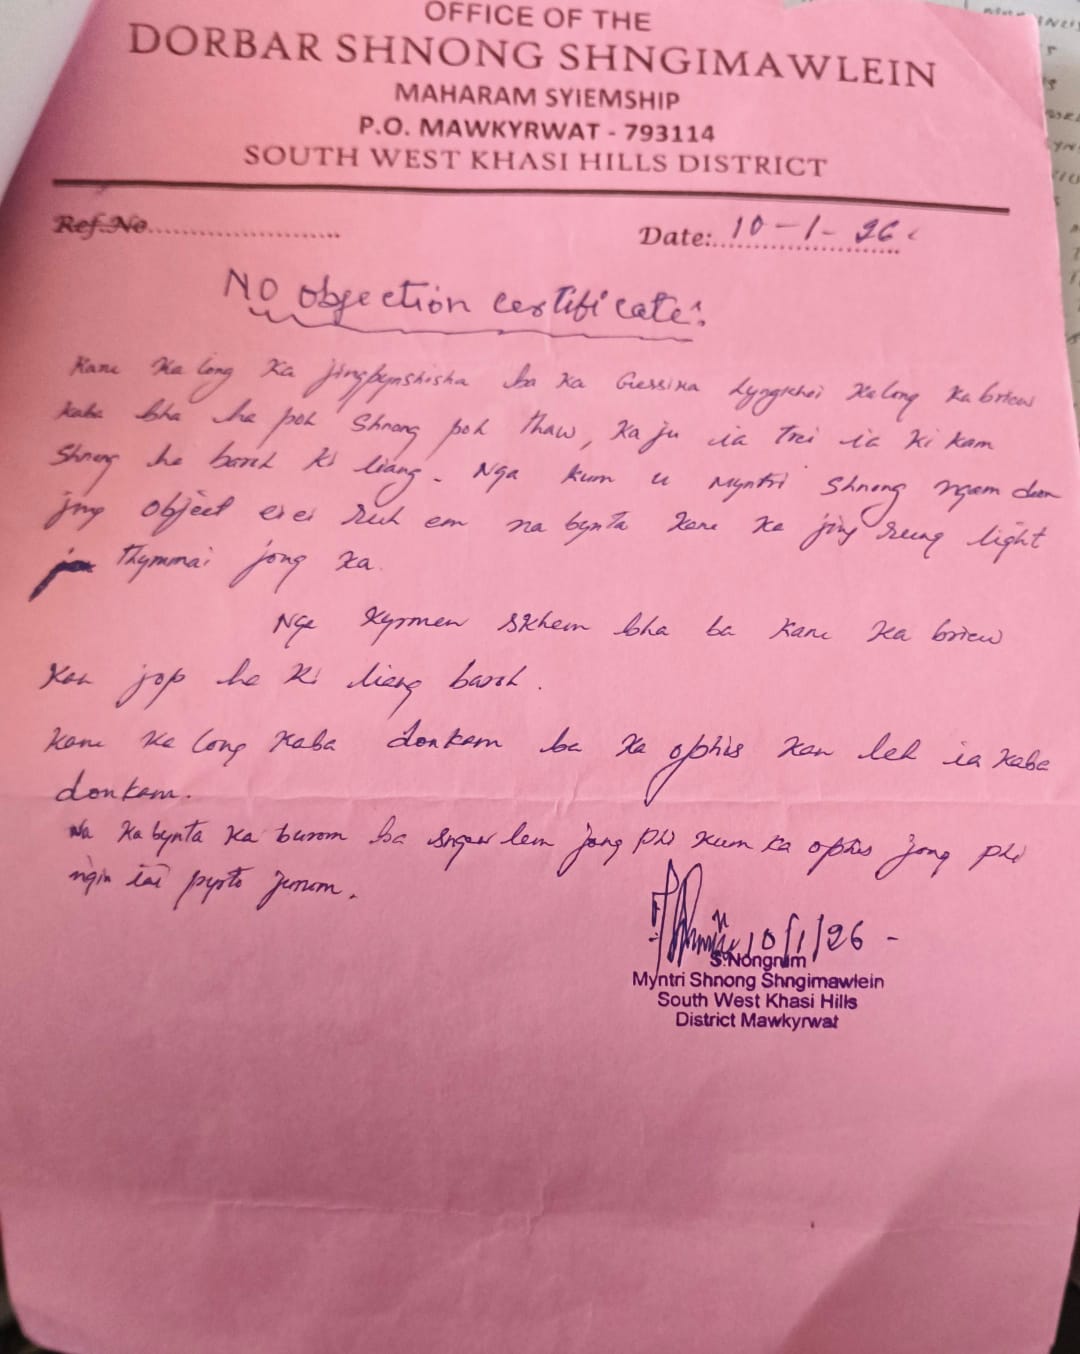 OFFICE OF THE
DORBAR SHNONG SHNGIMAWLEIN
MAHARAM SYIEMSHIP
P.O. MAWKYRWAT - 793114
SOUTH WEST KHASI HILLS DISTRICT
Ref.No........................
Date: 10-1-26
No objection certificate:
Kane ka long ka jingbynshisha ba ka Lyngkhoi ka long ka briew
kaba bha ha poh Shnong poh thaw, ka ju ia trei ia ki kam
Shnong ha baroh ki liang. Nga kum u Myntri Shnong ngam don
jing object ei ei ruh em na bynta kane ka jing rung light
thymmai jong ka.
Nga kyrmen skhem bha ba kane ka briew
kan jop ha ki liang baroh.
Kane ka long kaba donkam ba ka ophis kan leh ia kaba
donkam.
Na ka bynta ka burom ba sngew lem jong phi kum ka ophis jong phi
ngin iai pyrto junom.
10/1/26 -
S.Nongrum
Myntri Shnong Shngimawlein
South West Khasi Hills
District Mawkyrwat